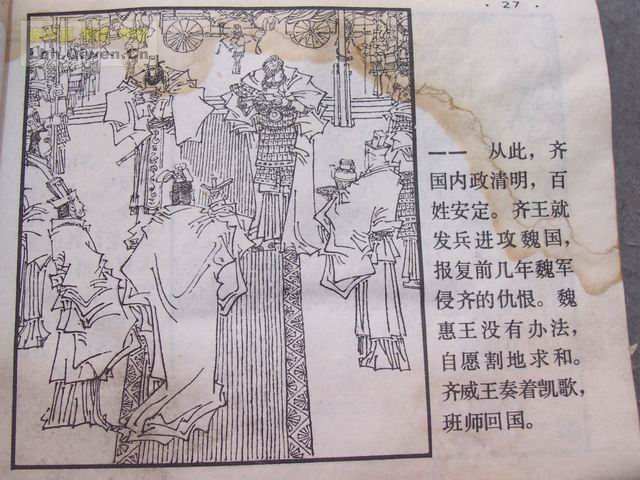 · 27 ·
一一 从此，齐
国内政清明，百
姓安定。齐王就
发兵进攻魏国，
报复前几年魏军
侵齐的仇恨。魏
惠王没有办法，
自愿割地求和。
齐威王奏着凯歌，
班师回国。